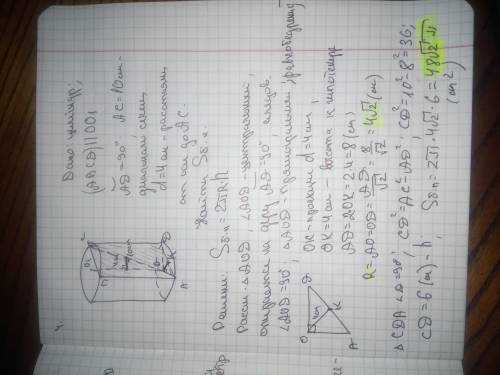 4.
Дано: цилиндр,
(ABCD) || OO1
AD = 90° AC = 10 см -
диагональ сечен.
d = 4 см - расстояние
от оси до AC.
Найти Sб.п.
Решение: Sб.п = 2πRh
Рассм. △AOD, ∠AOD - центральный,
опирается на дугу AD = 90°, следов.
∠AOD = 90°, △AOD - прямоугольный, равнобедренный
OK - проекция d = 4 см,
OK = 4 см - высота к гипотенузе
AD = 2OK = 2·4 = 8 (см)
R = AO = OD = AD/√2 = 8/√2 = 4√2 (см)
△CDA ∠D = 90°, CD² = AC² - AD², CD² = 10² - 8² = 36,
CD = 6 (см) = h, Sб.п = 2π·4√2·6 = 48√2 π
(см²)